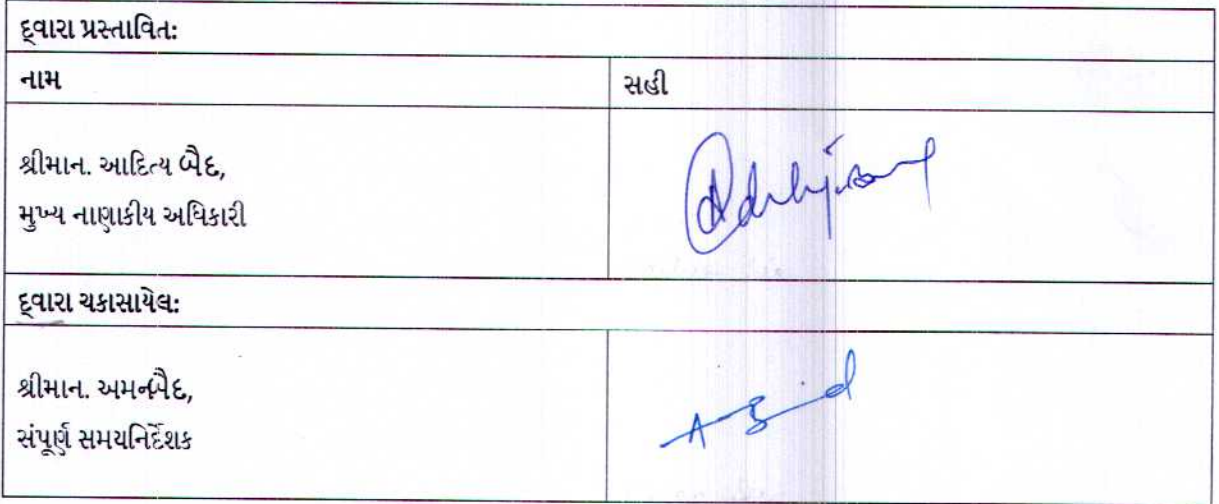 દ્વારા પ્રસ્તાવિત:
નામ સહી
શ્રીમાન. આદિત્ય બૈદ,
મુખ્ય નાણાકીય અધિકારી
દ્વારા ચકાસાયેલ:
શ્રીમાન. અમનબૈદ,
સંપૂર્ણ સમયનિર્દેશક